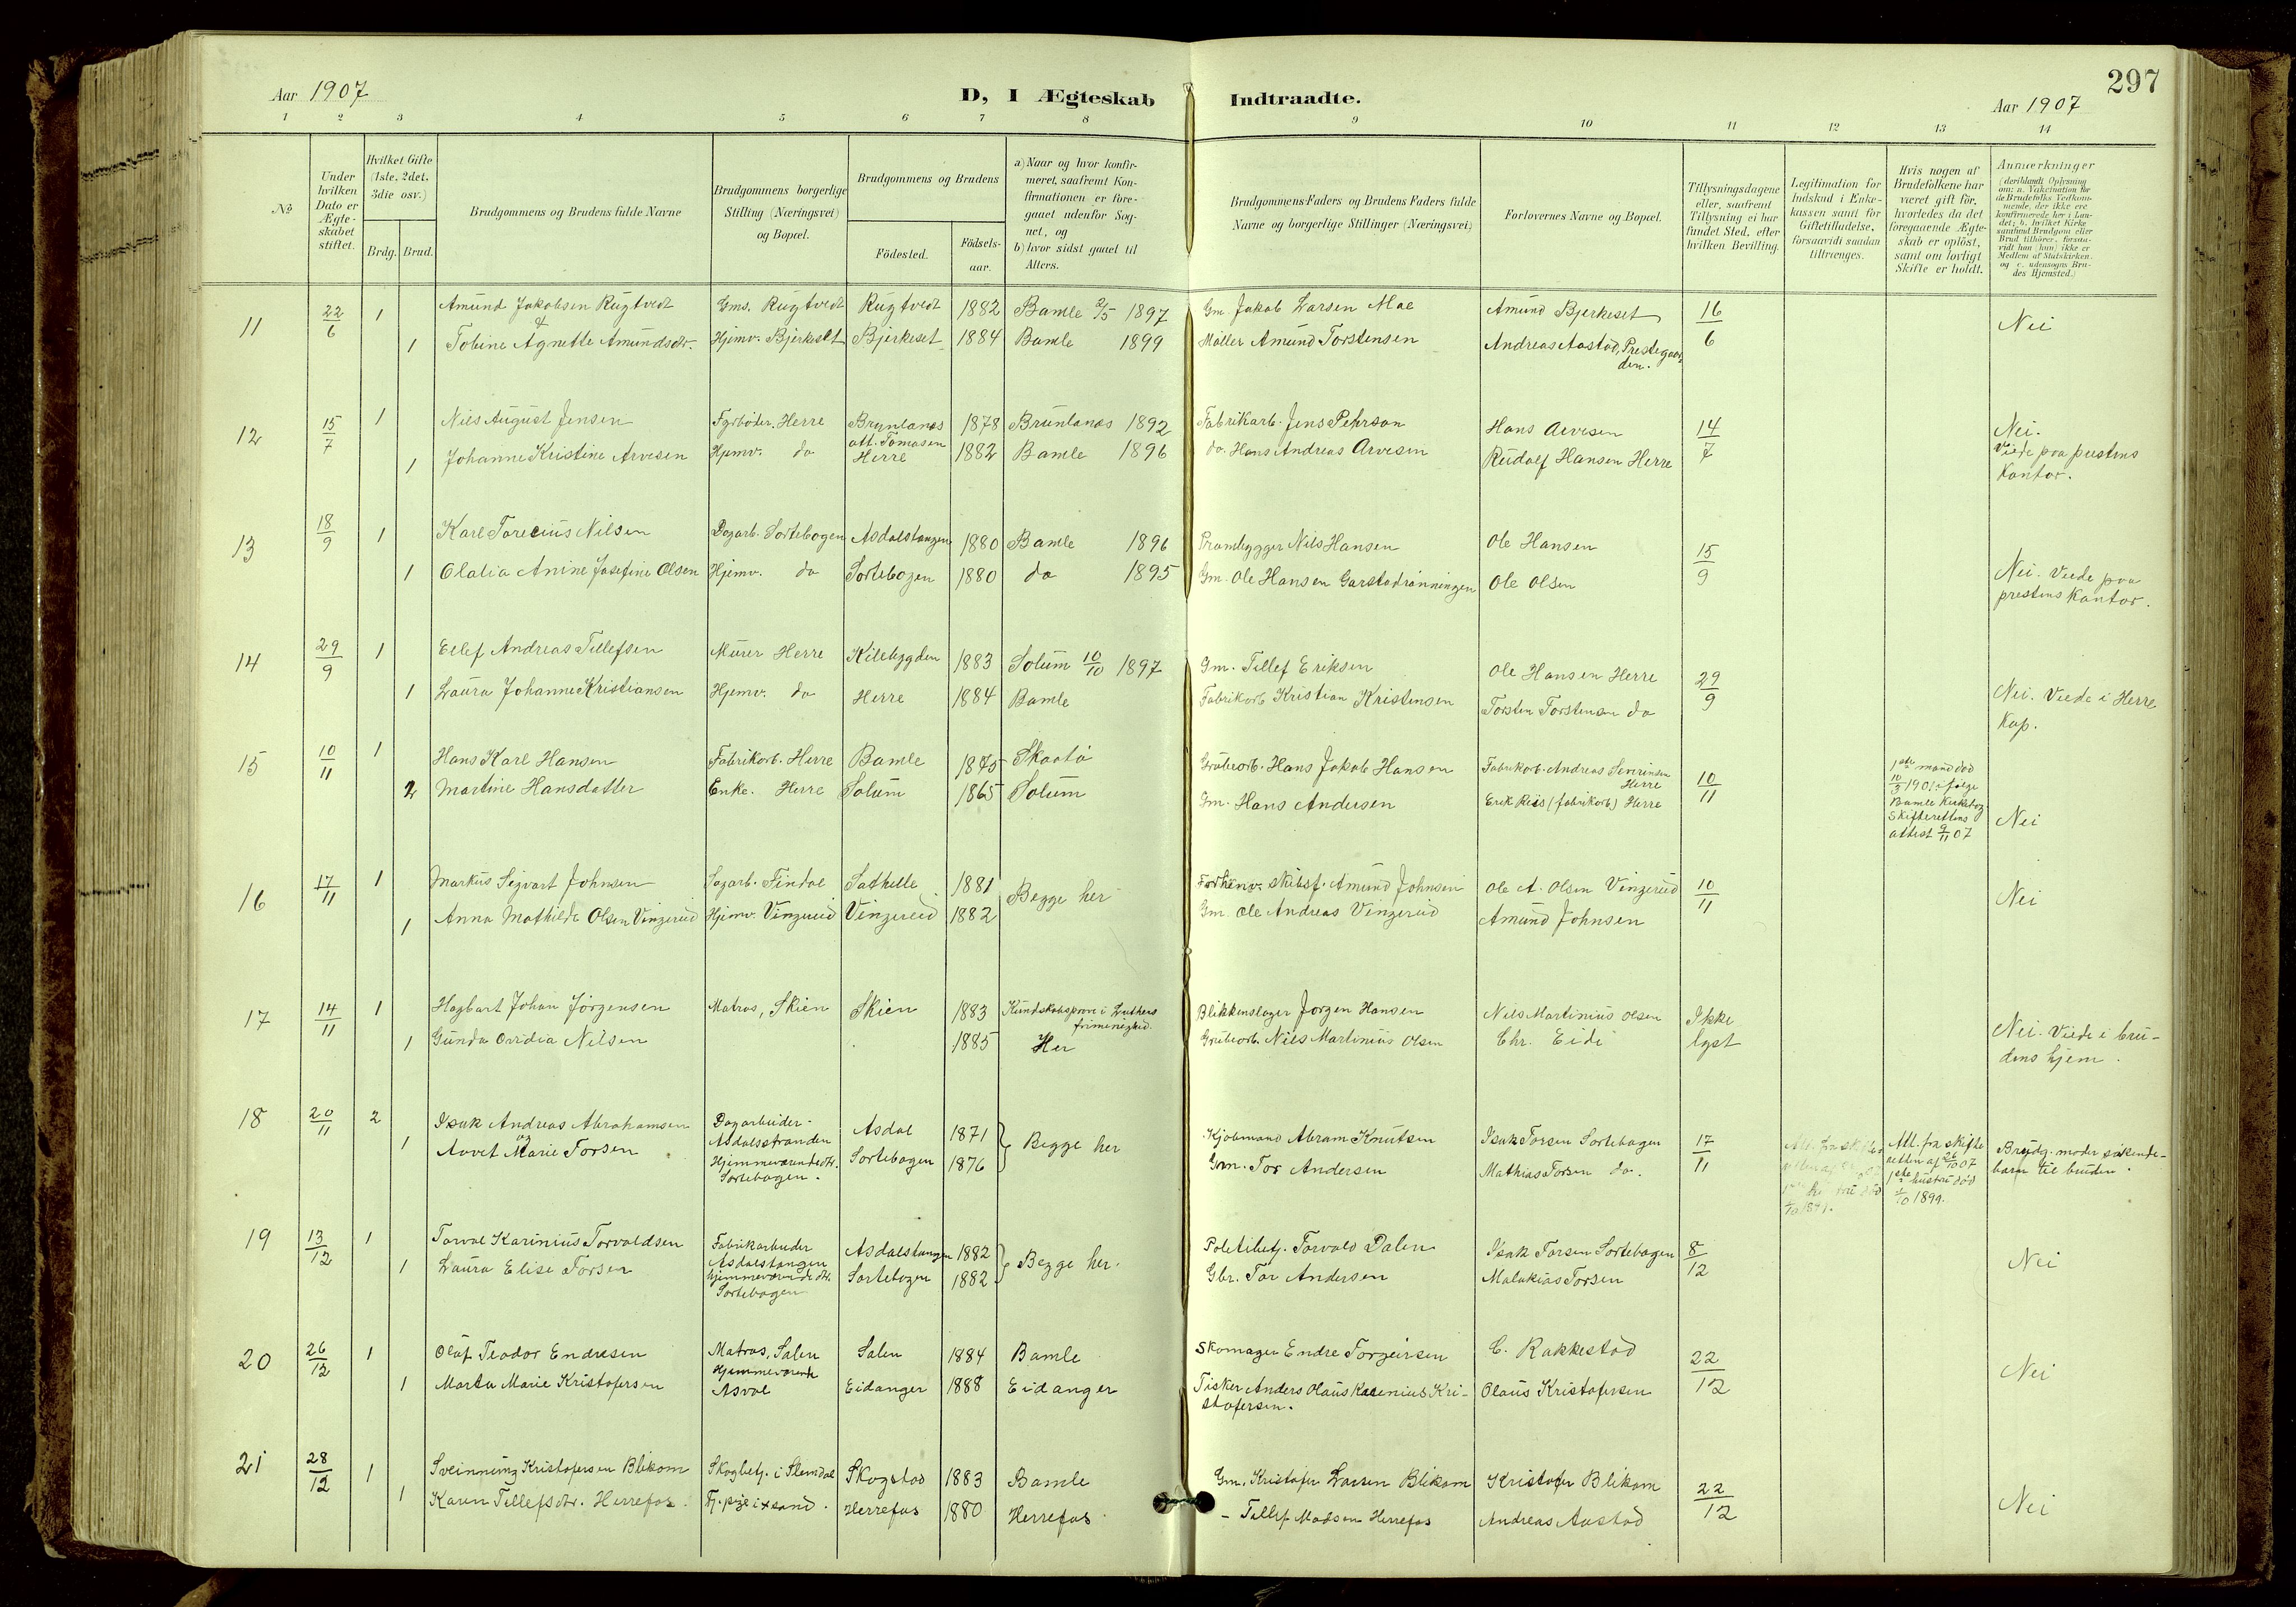 Aar 1907
D, I Ægteskab Indtraadte.
297
Aar 1907
1 2 3 4 5 6 7 8 9 10 11 12 13 14
No
Under hvilken Dato er Ægteskabet stiftet.
Hvilket Gifte (1ste, 2det, 3die osv.)
Brdg. Brud.
Brudgommens og Brudens fulde Navne
Brudgommens borgerlige Stilling (Næringsvei) og Bopæl.
Brudgommens og Brudens
Födested.
Födselsaar.
a) Naar og hvor konfirmeret, saafremt Konfirmationen er foregaaet udenfor Sognet, og
b) hvor sidst gaaet til Alters.
Brudgommens Faders og Brudens Faders fulde Navne og borgerlige Stillinger (Næringsvei)
Forlovernes Navne og Bopæl.
Tillysningsdagene eller, saafremt Tillysning ei har fundet Sted, efter hvilken Bevilling.
Legitimation for Indskud i Enkekassen samt for Giftetilladelse, forsaavidt saadan tiltrænges.
Hvis nogen af Brudefolkene har været gift för, hvorledes da det foregaaende Ægteskab er oplöst, samt om lovligt Skifte er holdt.
Anmærkninger
(deriblandt Oplysning om: a. Vakcination for de Brudefolks Vedkommende, der ikke ere konfirmerede her i Landet; b. hvilket Kirkesamfund Brudgom eller Brud tilhörer, forsaavidt han (hun) ikke er Medlem af Statskirken, og c. udensogns Brudes Hjemsted.)
11 22/6 1 Amund Jakobsen Rugtvedt Gms. Rugtvedt Rugtvedt 1882 Bamle 2/5 1897 Gm. Jakob Larsen Moe Amund Bjerkeset 16/6 Nei
& 1 Tobine Agnette Amundsdtr. Hjemv. Bjerkeset Bjerkeset 1884 Bamle 1899 Möller Amund Torstensen Andreas Aastad, Prestegaarden.
12 15/7 1 Nils August Jensen Fyrböter. Herre Brunlanæs 1878 Brunlanæs 1892 Fabrikarb. Jens Pehrson Hans Arvesen 14/7 Nei.
att. Tomasen
1 Johanne Kristine Arvesen Hjemv. do Herre 1882 Bamle 1896 do. Hans Andreas Arvesen Rudolf Hansen Herre Viede paa prestens Kontor.
13 18/9 1 Karl Torecius Nilsen Dagarb. Sortebogen Asdalstangen 1880 Bamle 1896 Prambygger Nils Hansen Ole Hansen 15/9
1 Olalia Anine Josefine Olsen Hjemv. do Sortebogen 1880 do 1895 Gm. Ole Hansen Garstadrönningen Ole Olsen Nei. Viede paa prestens Kontor.
14 29/9 1 Eilef Andreas Tillefsen Murer Herre Kilebygden 1883 Solum 10/10 1897 Gm. Tillef Eriksen Ole Hansen Herre 29/9
1 Laura Johanne Kristiansen Hjemv. do Herre 1884 Bamle Fabrikarb Kristian Kristensen Torsten Torstensen do Nei. Viede i Herre Kap.
15 10/11 1 Hans Karl Hansen Fabrikarb. Herre Bamle 1875 Skaatö Grubearb. Hans Jakob Hansen Fabrikarb. Andreas Severinsen Herre 10/11
2 Martine Hansdatter Enke. Herre Solum 1865 Solum Gm. Hans Andersen Erik Reis (fabrikarb) Herre
1ste mand död 10/3 1901 ifölge Bamle Kirkebog. Skifterettens attest 9/11 07 Nei
16 17/11 1 Markus Sigvart Johnsen Sagarb. Findal Stathelle 1881 Begge her Forhenv. skibsf. Amund Johnsen Ole A. Olsen Vingereid 10/11 Nei
1 Anna Mathilde Olsen Vingereid Hjemv. Vingereid Vingereid 1882 Gm. Ole Andreas Vingereid Amund Johnsen
17 14/11 1 Hagbart Johan Jörgensen Matros, Skien Skien 1883 Kundskabspröve i Luthers frimenighed. Blikkenslager Jörgen Hansen Nils Martinius Olsen Ikke lyst
1 Gunda Ovidia Nilsen 1885 Her Grubearb. Nils Martinius Olsen Chr. Eidi Nei. Viede i brudens hjem.
18 20/11 2 Isak Andreas Abrahamsen Dagarbeider. Asdalsstranden Asdal 1871 Begge her Kjöbmand Abram Knutsen Isak Torsen Sortebogen 17/11
og
1 Aavet Marie Torsen Hjemmeværende dtr. Sortebogen. Sortebogen 1876 Gm. Tor Andersen Mathias Torsen do.
Att. fra skifteretten af 26/10 07 1ste hustru död 1/10 1899.
Brudg. moder söskendebarn til bruden.
19 13/12 1 Torval Karinius Torvaldsen Fabrikarbeider Asdalstangen Asdalstangen 1882 Begge her. Politibetj. Torvald Dalen Isak Torsen Sortebogen 8/12 Nei
1 Laura Elise Torsen hjemmeværende dtr. Sortebogen Sortebogen 1882 Gbr. Tor Andersen Malakias Torsen
20 26/12 1 Olaf Teodor Endresen Matros, Salen Salen 1884 Bamle Skomager Endre Torgeirsen C. Rakkestad 22/12 Nei
1 Marta Marie Kristofersen Hjemmeværende Asvol Eidanger 1888 Eidanger Fisker Anders Olaus Karenius Kristofersen. Olaus Kristofersen
21 28/12 1 Sveinning Kristofersen Blekom Skogbetj. i Slemdal Skogstad 1883 Bamle Gm. Kristofer Larsen Blekom Kristofer Blekom 22/12 Nei
1 Karen Tillefsdtr. Herrefos. Tj.pige i xsand. Herrefos 1880 Herrefos – Tillef Madsen Herrefos Andreas Aastad